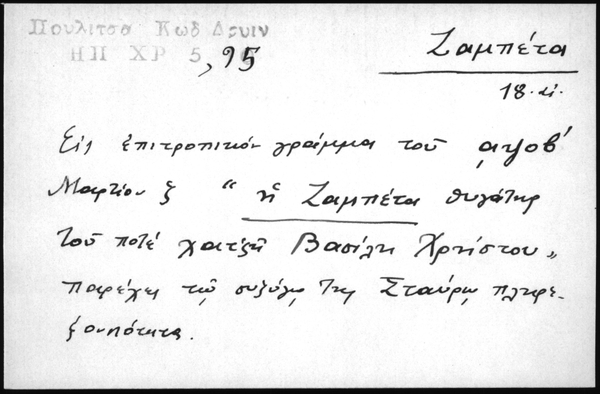 Πουλιτσα Κωδ Δενιν
ΗΠ ΧΡ 5, 95
Ζαμπέτα
18. αἰ.
Εἰς ἐπιτροπικόν γράμμα τοῦ ͵αψοβ´
Μαρτίου ξ “ ἡ Ζαμπέτα θυγάτηρ
τοῦ ποτέ χατζῆ Βασίλη Χρήστου „
παρέχει τῷ συζύγῳ της Σταύρῳ πληρε-
ξουσιότητα.